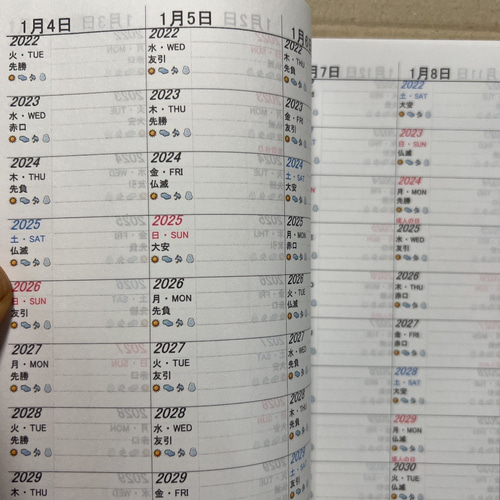 1月4日
2022
火・TUE
先勝
2023
水・WED
赤口
2024
木・THU
先負
2025
土・SAT
仏滅
2026
日・SUN
友引
2027
月・MON
先勝
2028
火・TUE
先勝
2029
木・THU
1月5日
2022
水・WED
友引
2023
木・THU
先勝
2024
金・FRI
仏滅
2025
日・SUN
大安
2026
月・MON
先負
2027
火・TUE
友引
2028
水・WED
友引
2029
金・FRI
2022
木・THU
先負
2023
金・FRI
友引
2024
土・SAT
大安
2025
月・MON
赤口
2026
火・TUE
仏滅
2027
水・WED
先負
2028
木・THU
先負
2029
土・SAT
月7日
1月8日
2022
土・SAT
大安
2023
日・SUN
仏滅
2024
月・MON
先勝
成人の日
2025
水・WED
先勝
2026
木・THU
赤口
2027
金・FRI
赤口
2028
土・SAT
大安
2029
月・MON
仏滅
成人の日
2030
火・TUE